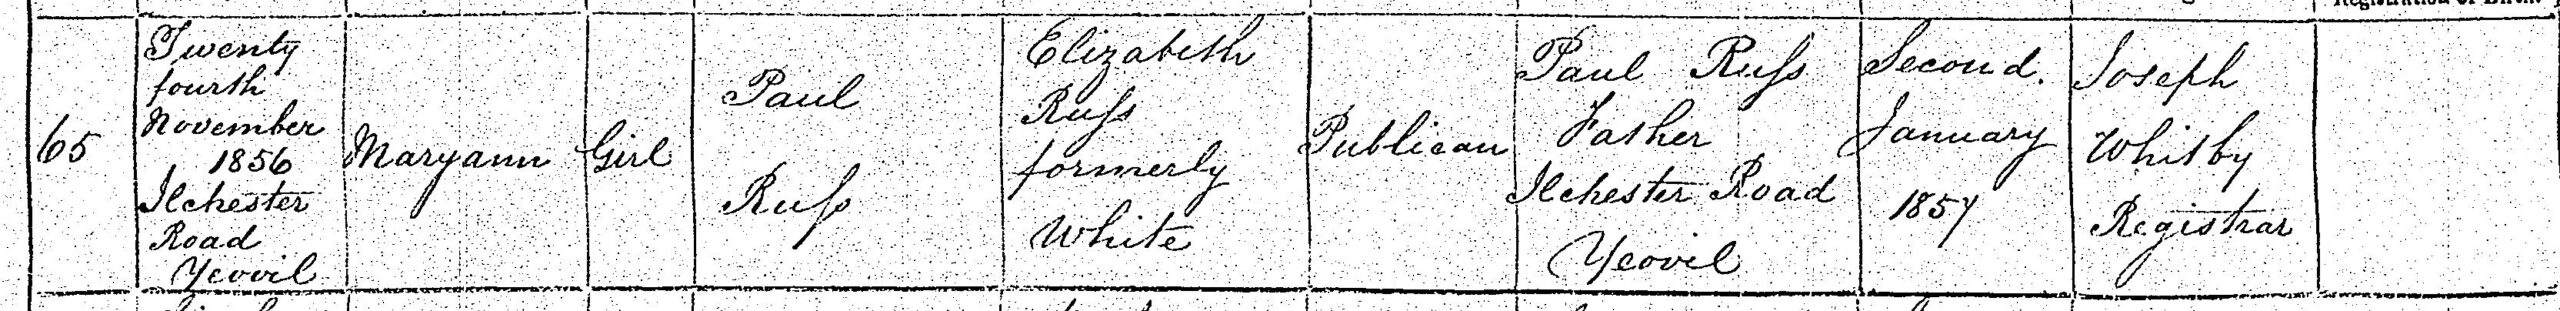 65
Twenty
fourth
November
1856
Ilchester
Road
Yeovil
Maryann
Girl
Paul
Ruſs
Elizabeth
Ruſs
formerly
White
Publican
Paul Ruſs
Father
Ilchester Road
Yeovil
Second.
January
1857
Joseph
Whitby
Registrar